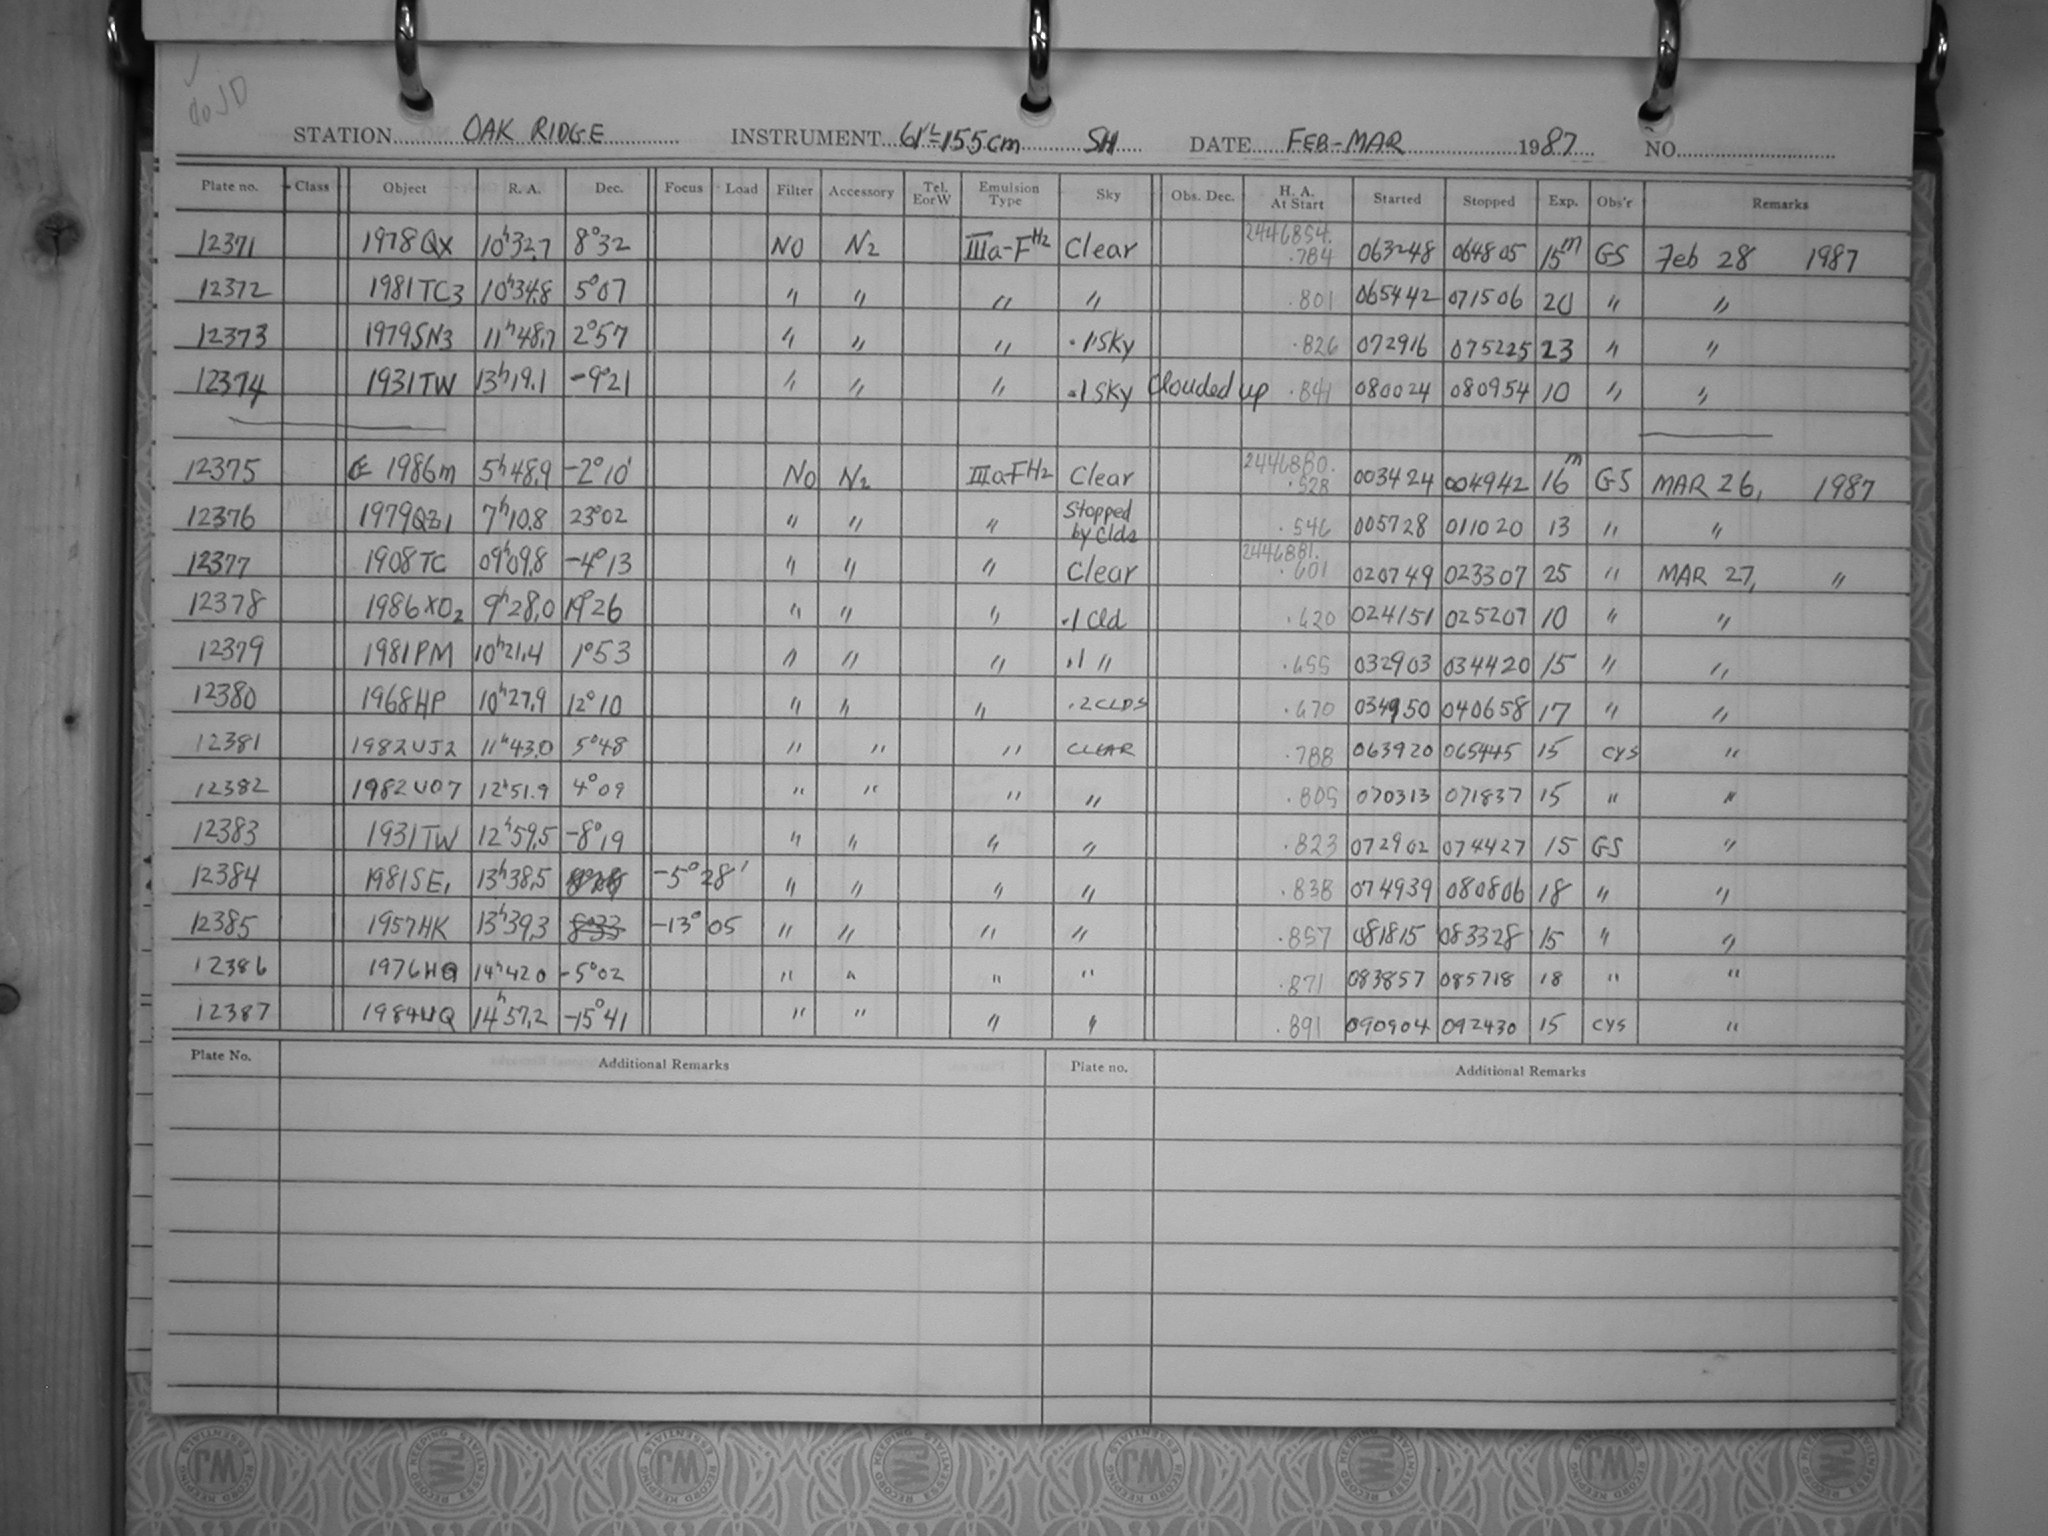 do JD
STATION OAK RIDGE INSTRUMENT 61"=155cm SH DATE FEB-MAR 1987 NO.
Plate no. Class Object R. A. Dec. Focus Load Filter Accessory Tel. EorW Emulsion Type Sky Obs. Dec. H. A. At Start Started Stopped Exp. Obs'r Remarks
12371 1978QX 10h32,7 8°32 NO N2 IIIa-FH2 Clear 2446854. .784 063248 064805 15m GS Feb 28 1987
12372 1981TC3 10h34,8 5°07 " " " " .801 065442 071506 20 " "
12373 1979SN3 11h48,7 2°57 " " " .1 Sky .826 072916 075225 23 " "
12374 1931TW 13h19.1 -9°21 " " " .1 Sky Clouded up .841 080024 080954 10 " "
12375 1986m 5h48,9 -2°10' NO N2 IIIa-FH2 Clear 2446880. .528 003424 004942 16m GS MAR 26, 1987
12376 1979QZ1 7h10.8 23°02 " " " Stopped by Clds .546 005728 011020 13 " "
12377 1908TC 09h09,8 -4°13 " " " Clear 2446881. .601 020749 023307 25 " MAR 27, "
12378 1986XO2 9h28,0 19°26 " " " .1 Cld .620 024151 025207 10 " "
12379 1981PM 10h21,4 1°53 " " " .1 " .655 032903 034420 15 " "
12380 1968HP 10h27,9 12°10 " " " .2 CLDS .670 034950 040658 17 " "
12381 1982UJ2 11h43.0 5°48 " " " CLEAR .788 063920 065445 15 CYS "
12382 1982UO7 12h51.9 4°09 " " " " .805 070313 071837 15 " "
12383 1931TW 12h59,5 -8°19 " " " " .823 072902 074427 15 GS "
12384 1981SE1 13h38,5 -5°28' " " " " .838 074939 080806 18 " "
12385 1957HK 13h39,3 8°33 -13°05 " " " " .857 081815 083328 15 " "
12386 1976HQ 14h42.0 -5°02 " " " " .871 083857 085718 18 " "
12387 1984UQ 14h57,2 -15°41 " " " " .891 090904 092430 15 CYS "
Plate No. Additional Remarks Plate no. Additional Remarks